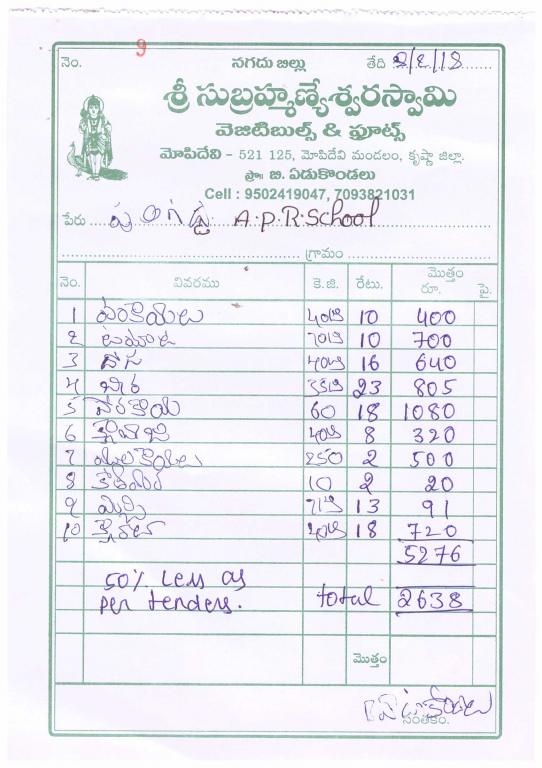 9
నెం. నగదు బిల్లు తేది 2/2/18
శ్రీ సుబ్రహ్మణ్యేశ్వరస్వామి
వెజిటిబుల్స్ & ఫ్రూట్స్
మోపిదేవి - 521 125, మోపిదేవి మండలం, కృష్ణా జిల్లా.
ప్రొ॥ బి. ఏడుకొండలు
Cell : 9502419047, 7093821031
పేరు A.P.R.School
గ్రామం
నెం. వివరము కె.జి. రేటు. మొత్తం రూ. పై.
1 వంకాయలు 40కేజి 10 400
2 టమాట 70కేజి 10 700
3 దోస 40కేజి 16 640
4 బీర 35కేజి 23 805
5 దొరకాయ 60 18 1080
6 క్యాబేజి 40కేజి 8 320
7 ములకాయలు 250 2 500
8 కొతిమీర 10 2 20
9 మిర్చి 7కేజి 13 91
10 క్యారెట్ 40కేజి 18 720
5276
50% Less as
per tenders. total 2638
మొత్తం
సంతకం.